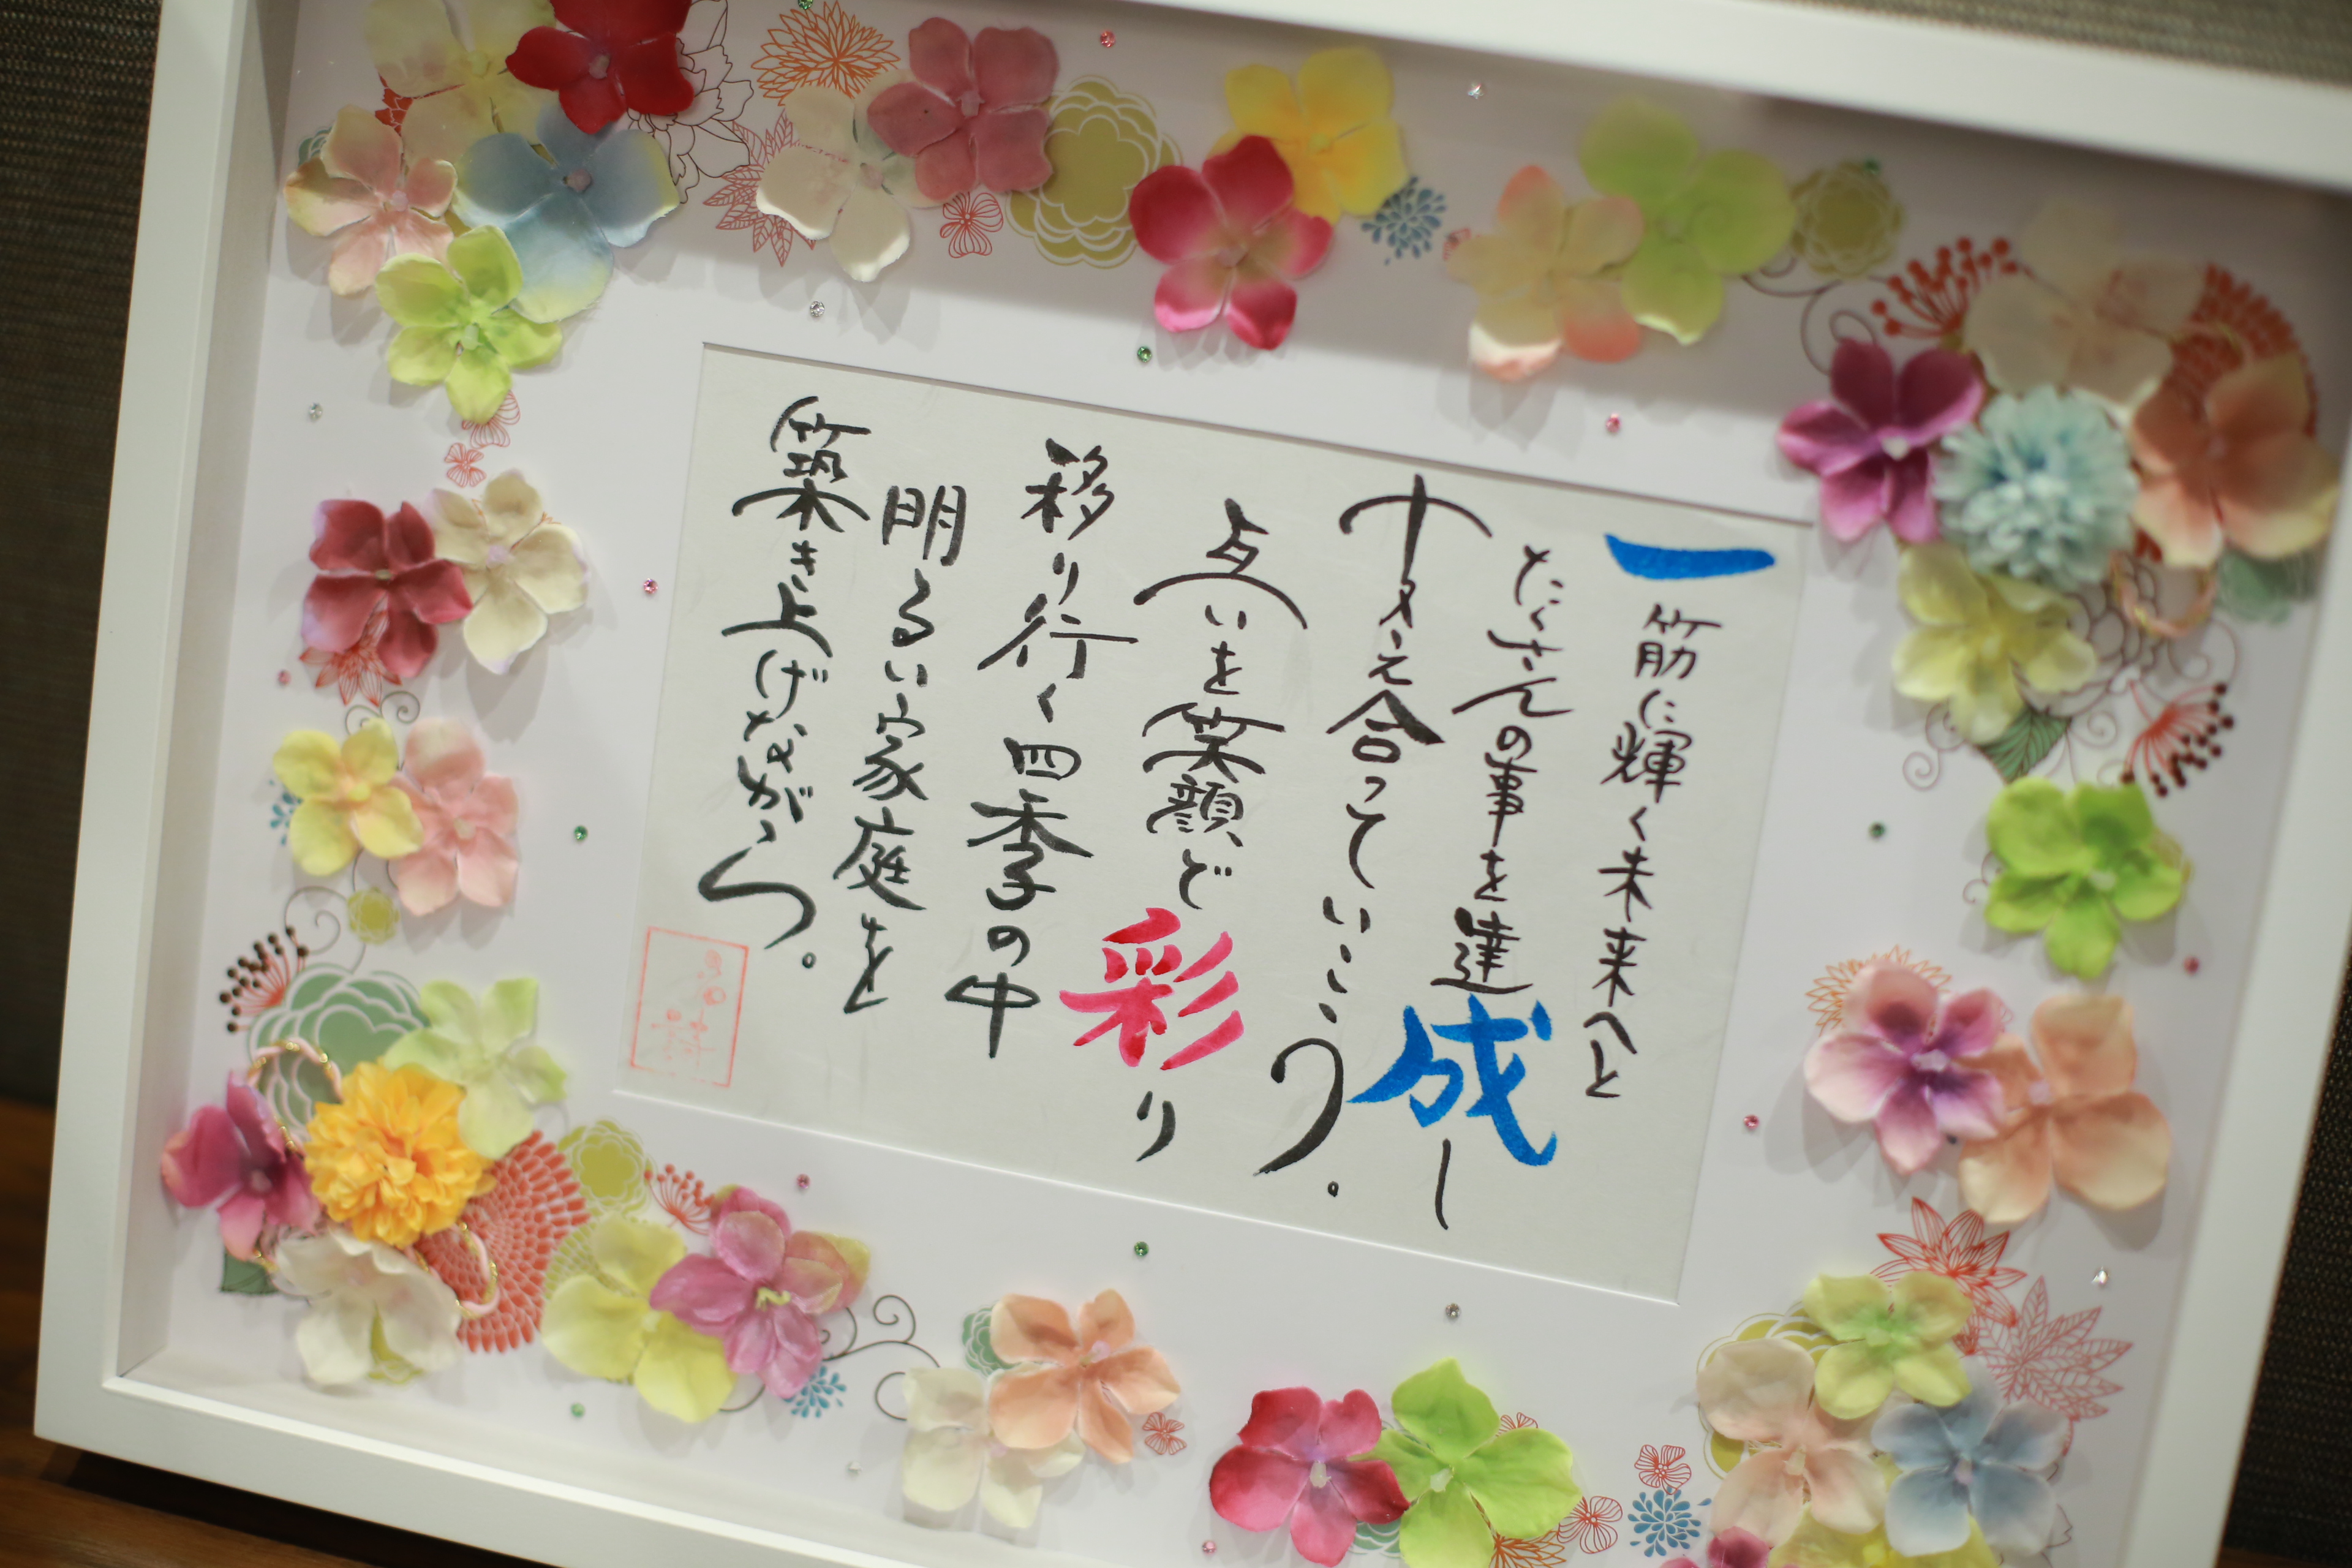 一筋に輝く未来へと
たくさんの事を達成し
叶え合っていこう。
互いを笑顔で彩り
移り行く四季の中
明るい家庭を
築き上げながら。